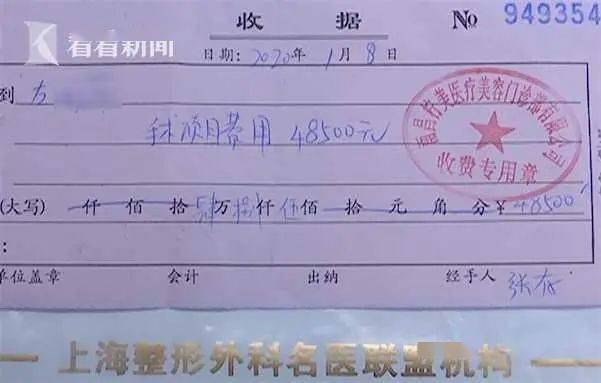 收 据 No 949354
看看新闻
日期: 2020年 1月 8日
到 方
手术项目费用 48500元
医疗美容门诊部有限公司
收费专用章
(大写) 仟 佰 拾 肆万 捌仟 伍佰 拾 元 角 分 ¥ 48500
单位盖章 会计 出纳 经手人 张
上海整形外科名医联盟机构